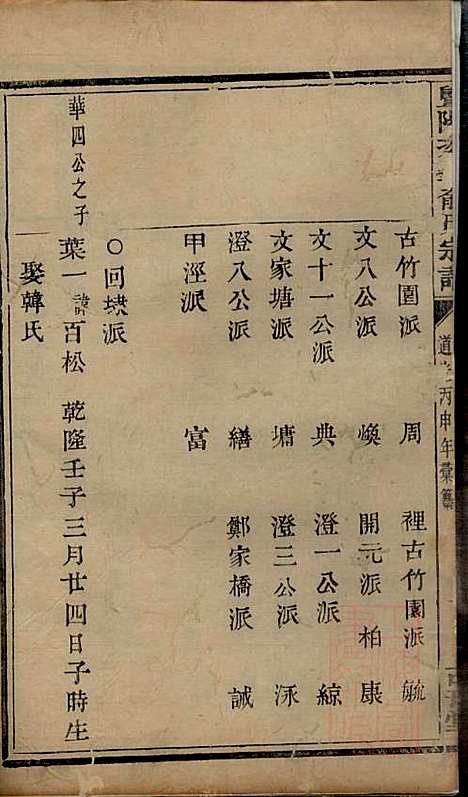 暨陽次峯俞氏宗譜 道光丙申年彙纂
古竹園派 周 裡古竹園派 毓
文八公派 煥 開元派 柏 康
文十一公派 典 澄一公派 綜
文家塘派 墉 澄三公派 泳
澄八公派 繕 鄭家橋派 誠
甲涇派 富
○回墺派
華四公之子 葉一 諱百松 乾隆壬子三月廿四日子時生
娶韓氏